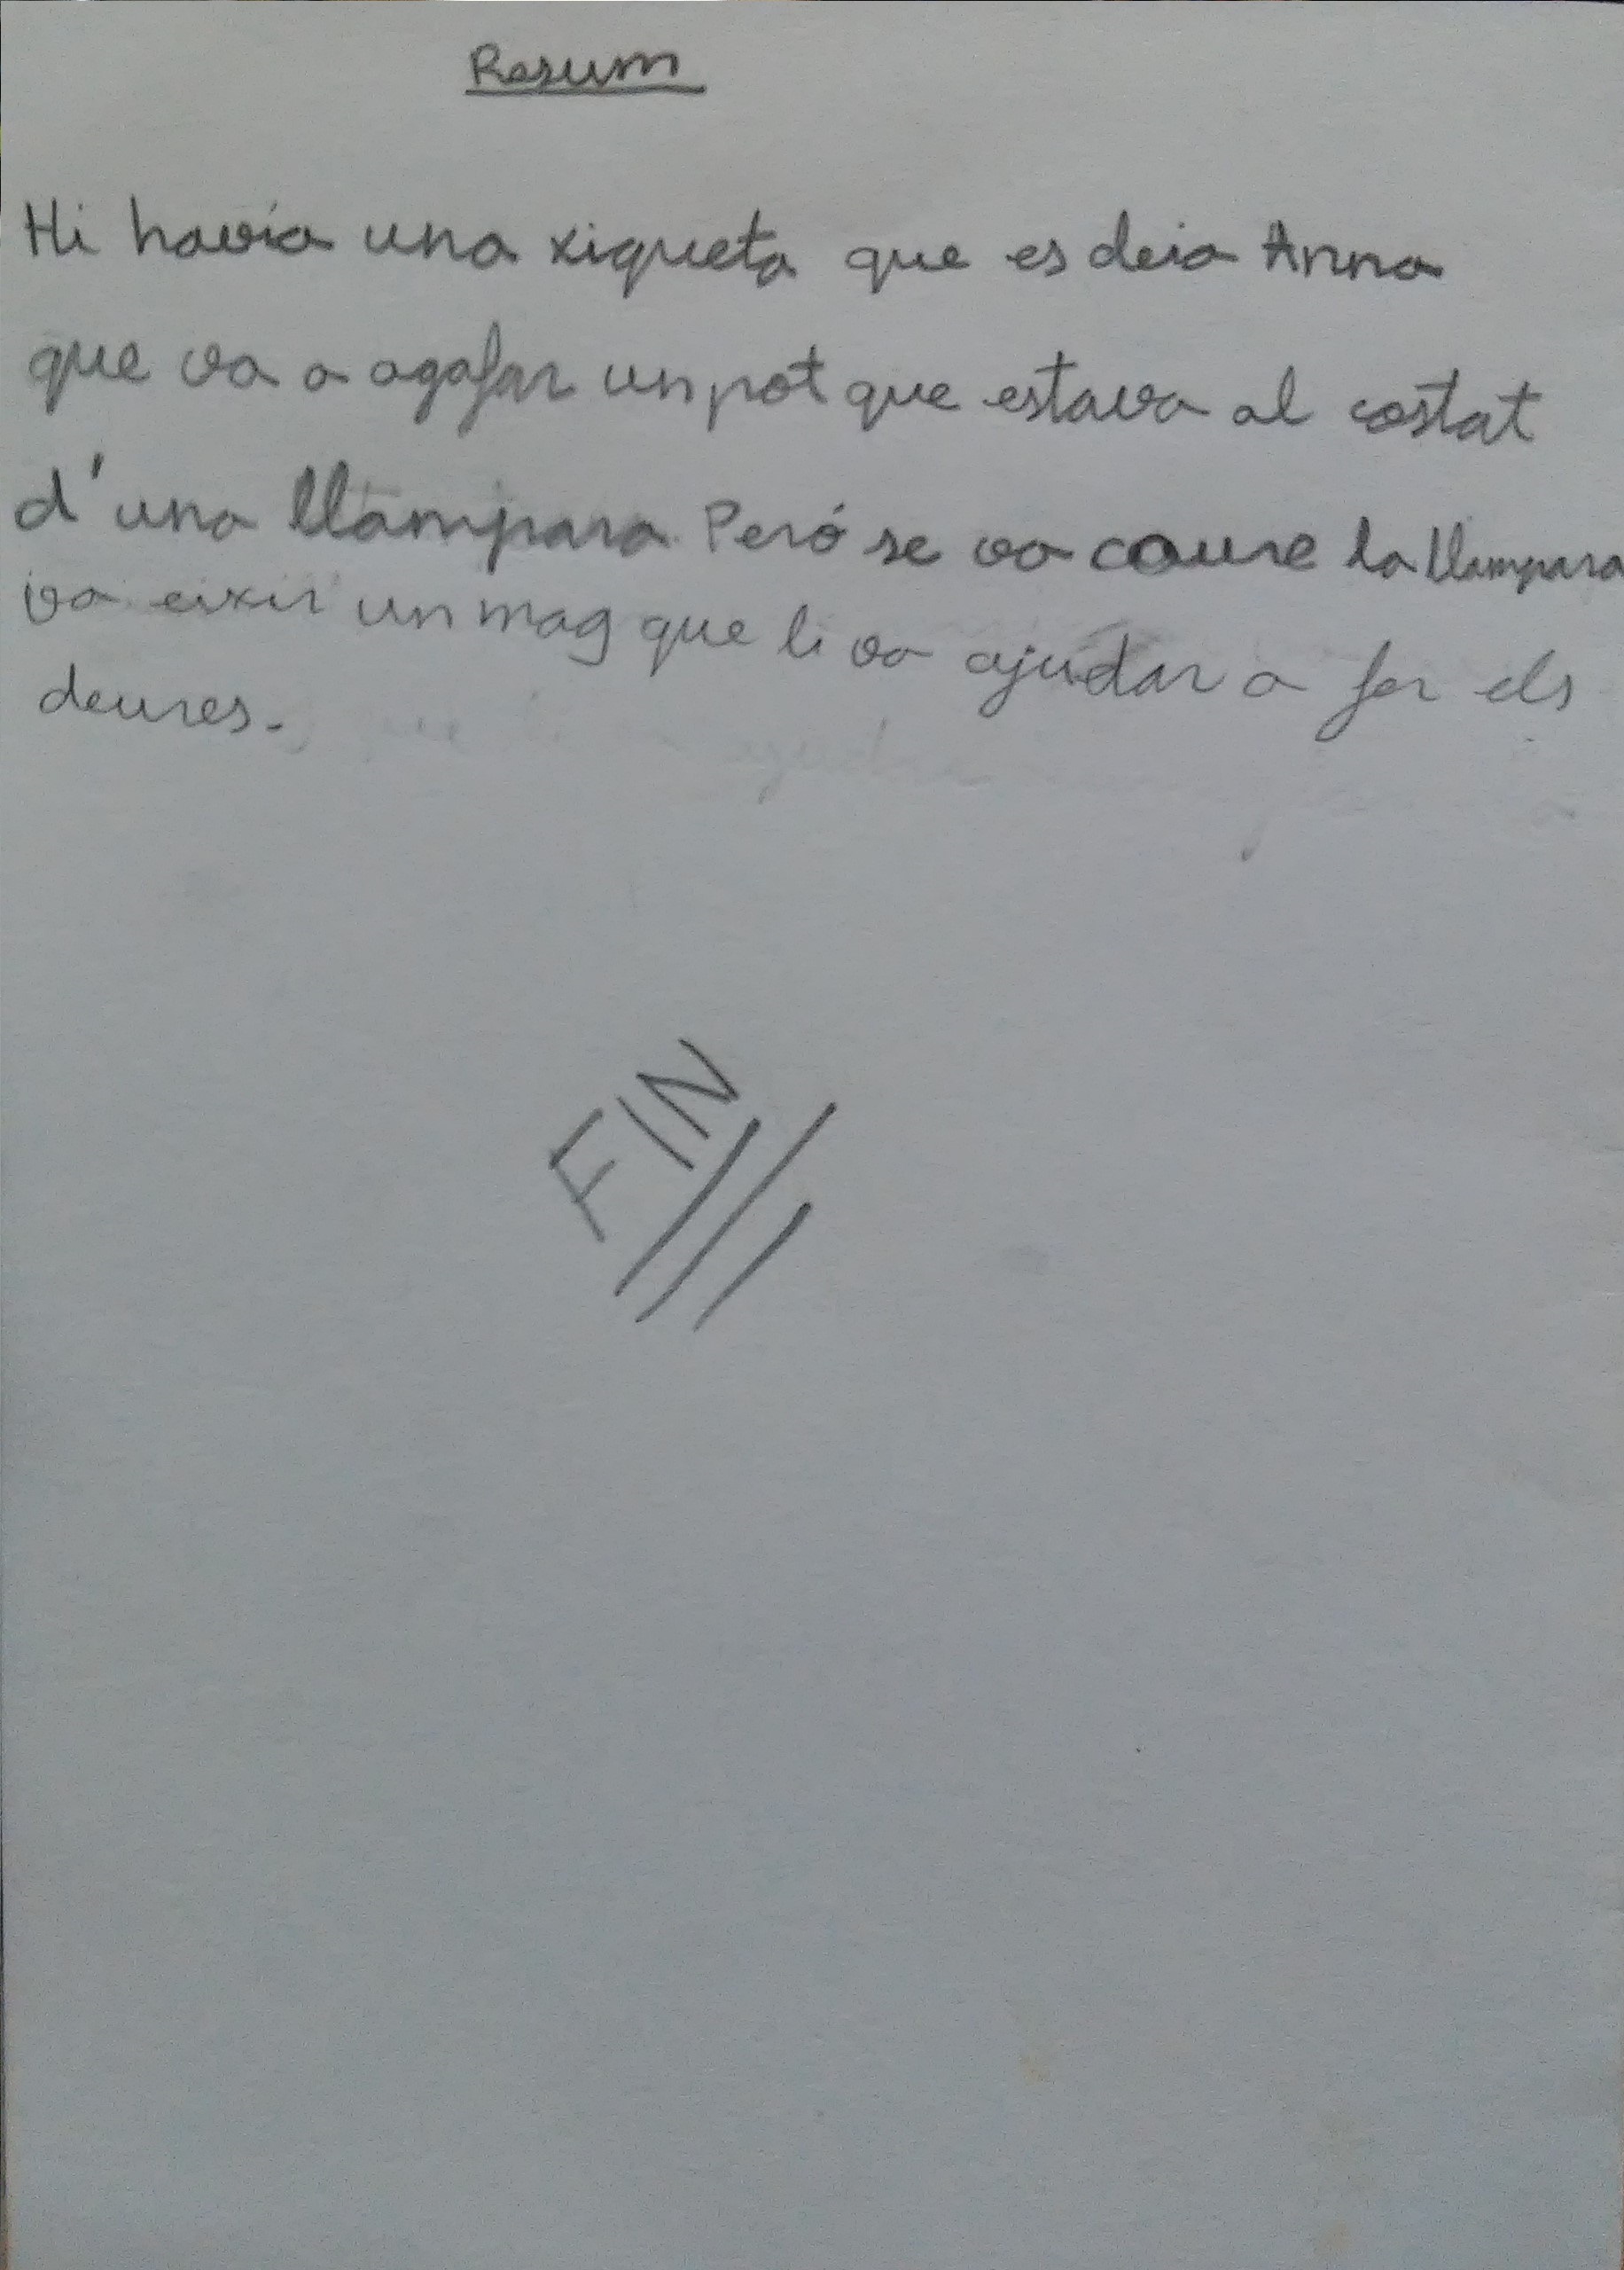 Resum
Hi havía una xiqueta que es deia Anna
que va a agafar un pot que estava al costat
d'una llampara. Peró se va caure la llampara
va eixir un mag que li va ajudar a fer els
deures.
FIN